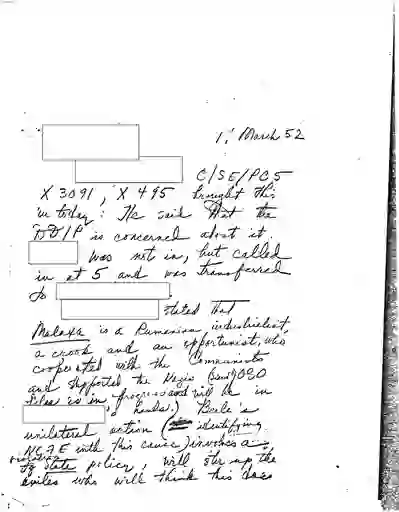 1. March 52
C/SE/PC5
X 3091, X 495 brought this
in today: He said that the
DD/P is concerned about it.
was not in, but called
in at 5 and was transferred
to
stated that
Malaxa is a Rumanian industrialist,
a crook and an opportunist, who
cooperated with the Communists
and supported the Nazis OSO
files is in progress and will be in
hands.) Berle's
unilateral action ( identifying
NCFE with this cause) involves a
violation
of state policy, will stir up the
exiles who will think this does